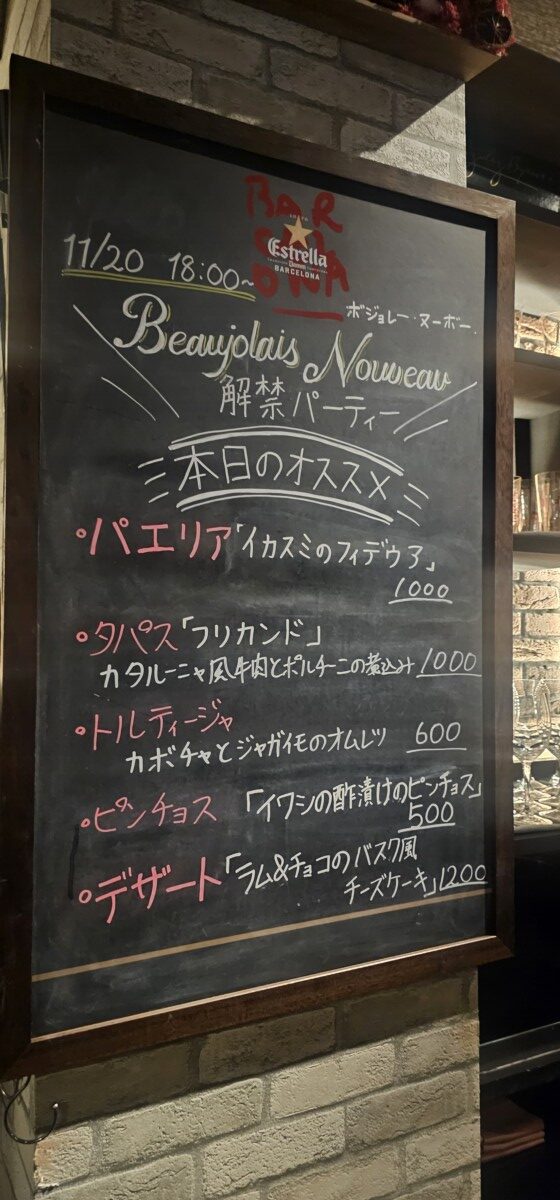 BAR
CEL
ONA
Estrella
BARCELONA
11/20 18:00~
ボジョレー・ヌーボー.
Beaujolais Nouveau
解禁パーティー
本日のオススメ
・パエリア「イカスミのフィデウア」
1000
・タパス「フリカンド」
カタルーニャ風牛肉とポルチーニの煮込み 1000
・トルティージャ
カボチャとジャガイモのオムレツ 600
・ピンチョス 「イワシの酢漬けのピンチョス」
500
・デザート「ラム&チョコのバスク風
チーズケーキ」1200